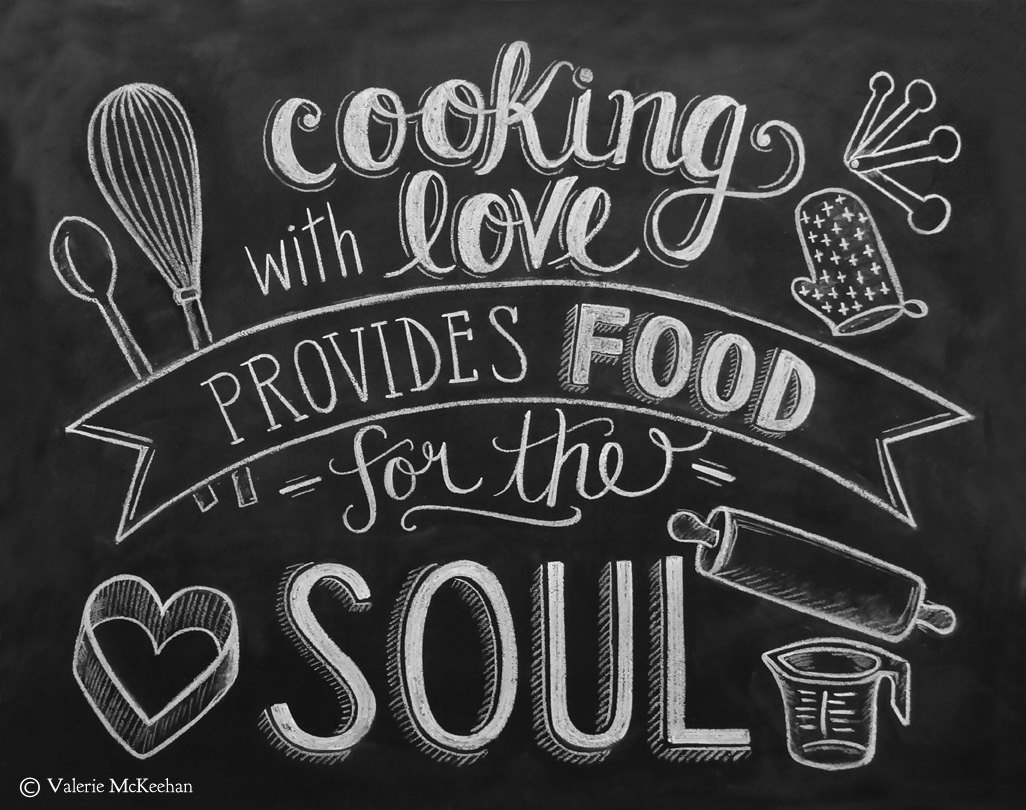 cooking
with love
PROVIDES FOOD
for the
SOUL
© Valerie McKeehan